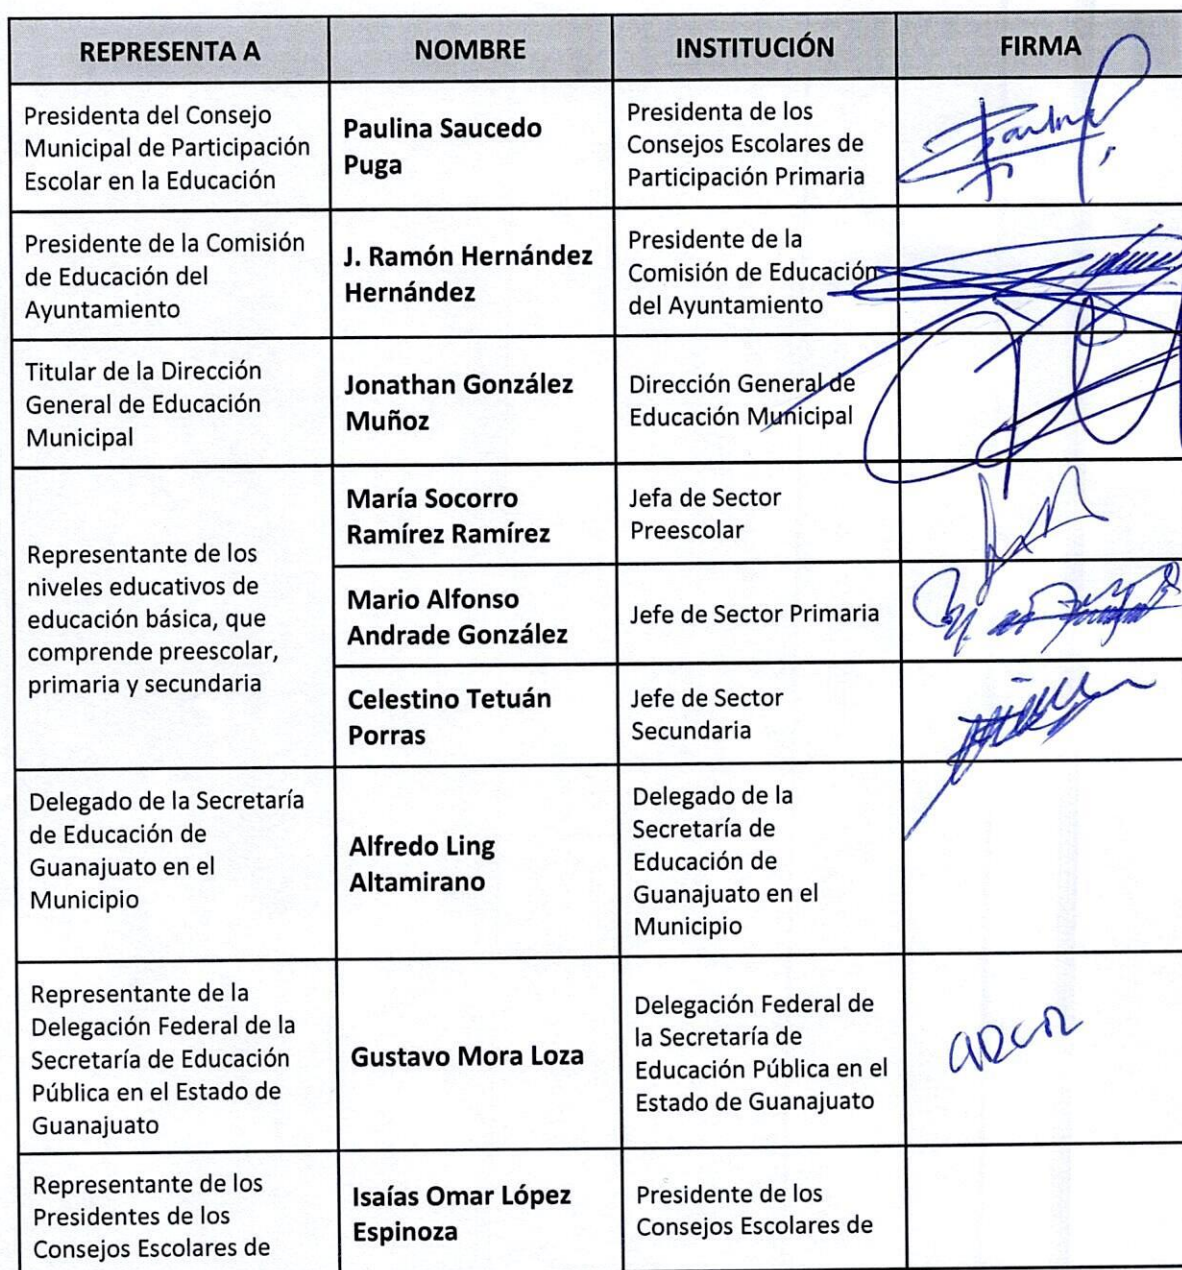 REPRESENTA A NOMBRE INSTITUCIÓN FIRMA
Presidenta del Consejo
Municipal de Participación
Escolar en la Educación
Paulina Saucedo
Puga
Presidenta de los
Consejos Escolares de
Participación Primaria
Presidente de la Comisión
de Educación del
Ayuntamiento
J. Ramón Hernández
Hernández
Presidente de la
Comisión de Educación
del Ayuntamiento
Titular de la Dirección
General de Educación
Municipal
Jonathan González
Muñoz
Dirección General de
Educación Municipal
Representante de los
niveles educativos de
educación básica, que
comprende preescolar,
primaria y secundaria
María Socorro
Ramírez Ramírez
Jefa de Sector
Preescolar
Mario Alfonso
Andrade González
Jefe de Sector Primaria
Celestino Tetuán
Porras
Jefe de Sector
Secundaria
Delegado de la Secretaría
de Educación de
Guanajuato en el
Municipio
Alfredo Ling
Altamirano
Delegado de la
Secretaría de
Educación de
Guanajuato en el
Municipio
Representante de la
Delegación Federal de la
Secretaría de Educación
Pública en el Estado de
Guanajuato
Gustavo Mora Loza
Delegación Federal de
la Secretaría de
Educación Pública en el
Estado de Guanajuato
Representante de los
Presidentes de los
Consejos Escolares de
Isaías Omar López
Espinoza
Presidente de los
Consejos Escolares de